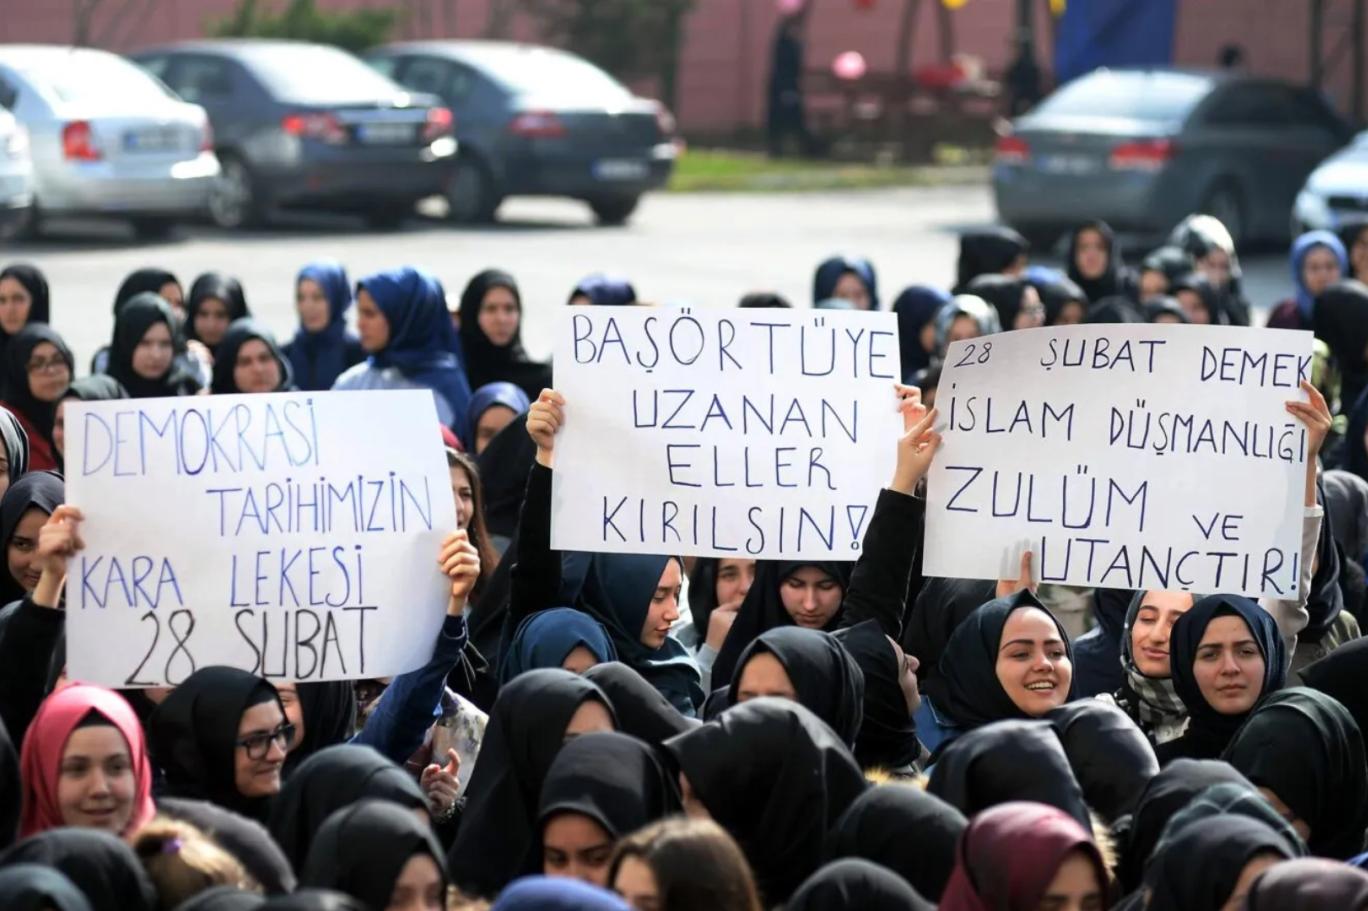 DEMOKRASİ
TARİHİMİZİN
KARA LEKESİ
28 ŞUBAT
BAŞÖRTÜYE
UZANAN
ELLER
KIRILSIN!
28 ŞUBAT DEMEK
İSLAM DÜŞMANLIĞI
ZULÜM VE
UTANÇTIR!